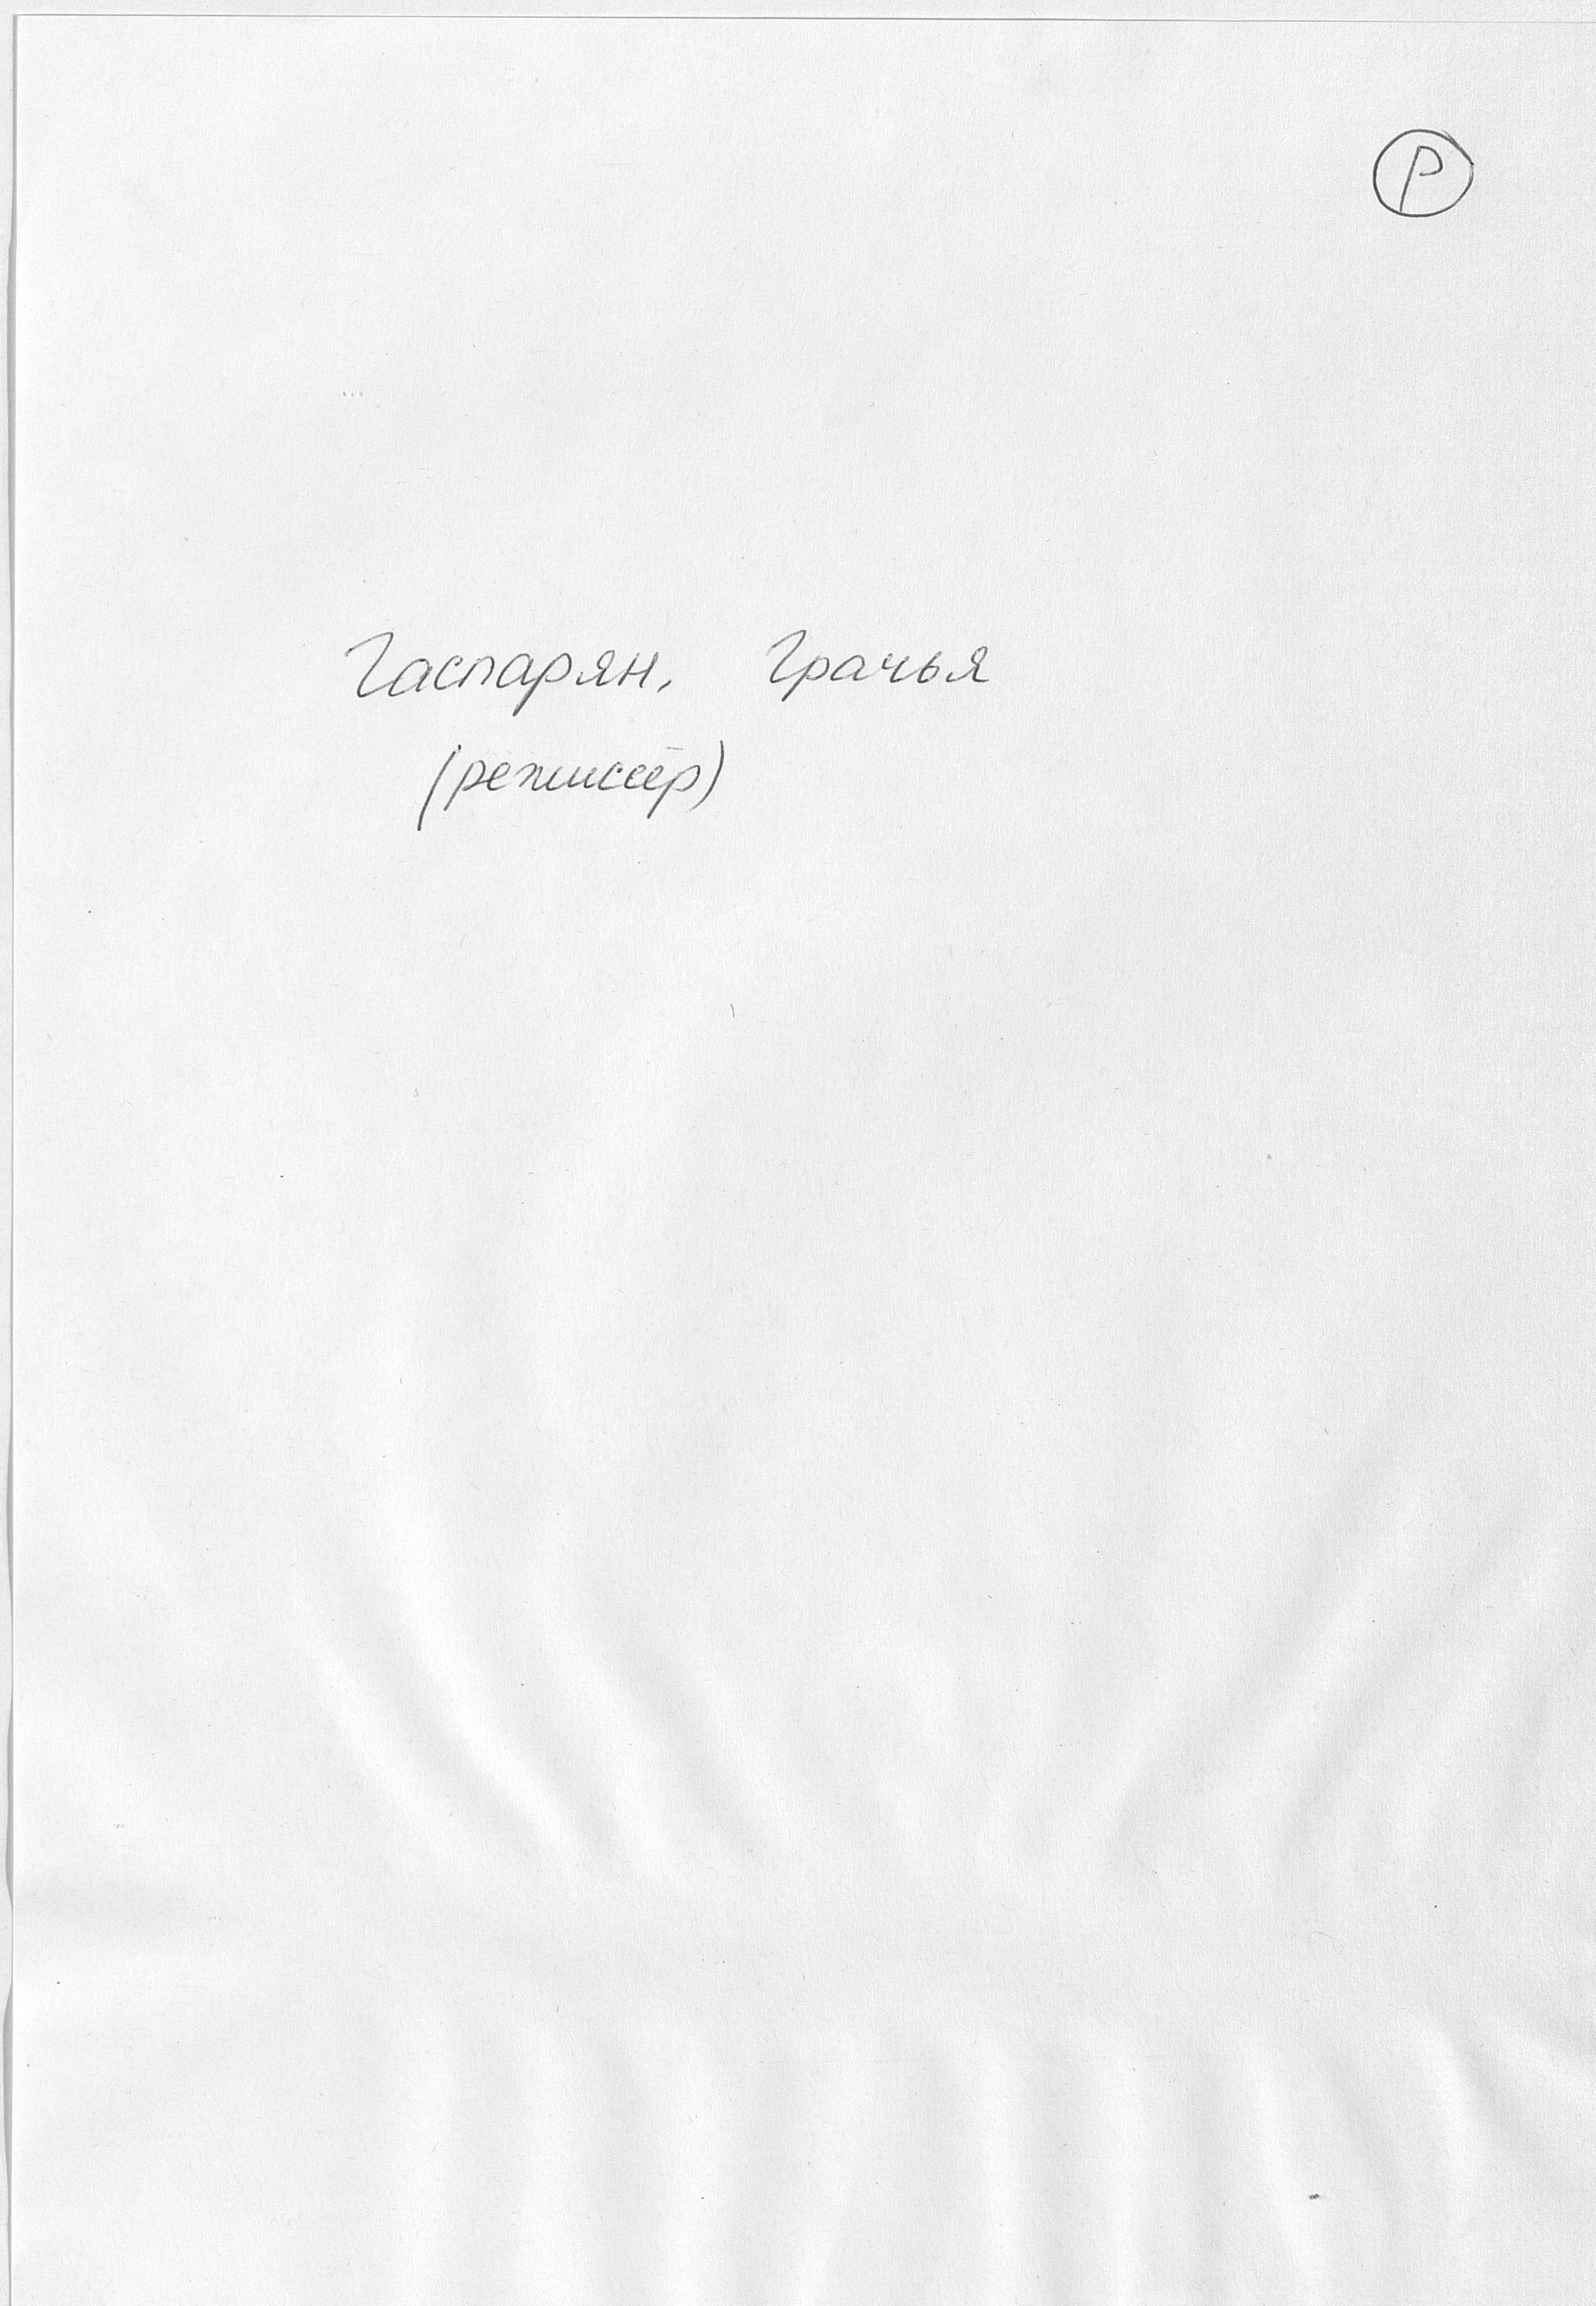 Р
Гаспарян, Грачья
(режиссёр)